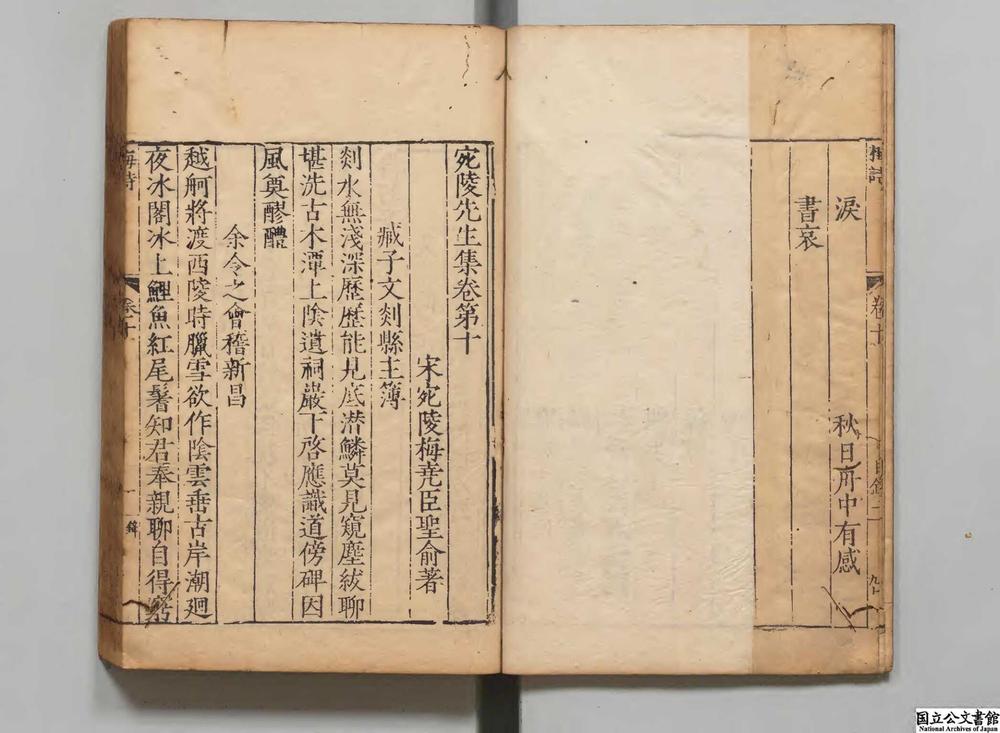 淚
秋日府中有感
書哀
宛陵先生集卷第十
宋宛陵梅堯臣聖俞著
臧子文剡縣主簿
剡水無淺深歷歷能見底潛鱗莫見窺塵紱聊
堪洗古木潭上陰遺祠巖下啓應識道傍碑因
風奠醪醴
余令之會稽新昌
越舸將渡西陵時臘雪欲作陰雲垂古岸潮廻
夜冰閣冰上鯉魚紅尾鬐知君奉親聊自得窮
国立公文書館
National Archives of Japan